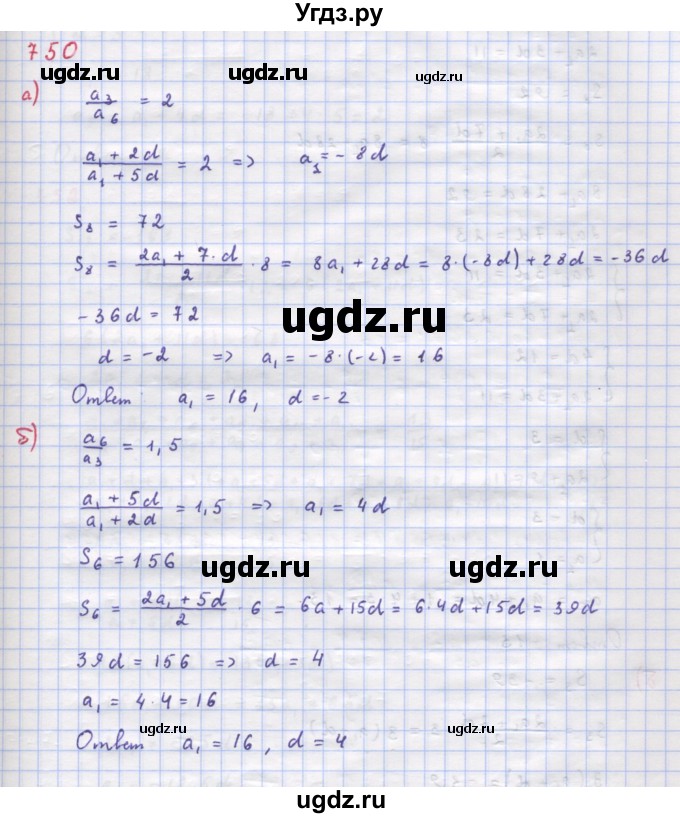 Угдз.ру
750
ugdz.ru ugdz.ru ugdz.ru
а) a₃/a₆ = 2
(a₁ + 2d)/(a₁ + 5d) = 2 => a₁ = - 8d
S₈ = 72
S₈ = (2a₁ + 7·d)/2 · 8 = 8a₁ + 28d = 8·(-8d) + 28d = -36d
-36d = 72
ugdz.ru
d = -2 => a₁ = -8·(-2) = 16
Ответ: a₁ = 16, d = -2
б) a₆/a₃ = 1,5
(a₁ + 5d)/(a₁ + 2d) = 1,5 => a₁ = 4d
S₆ = 156
ugdz.ru ugdz.ru
S₆ = (2a₁ + 5d)/2 · 6 = 6a + 15d = 6·4d + 15d = 39d
39d = 156 => d = 4
a₁ = 4·4 = 16
ugdz.ru ugdz.ru
Ответ a₁ = 16, d = 4
ugdz.ru